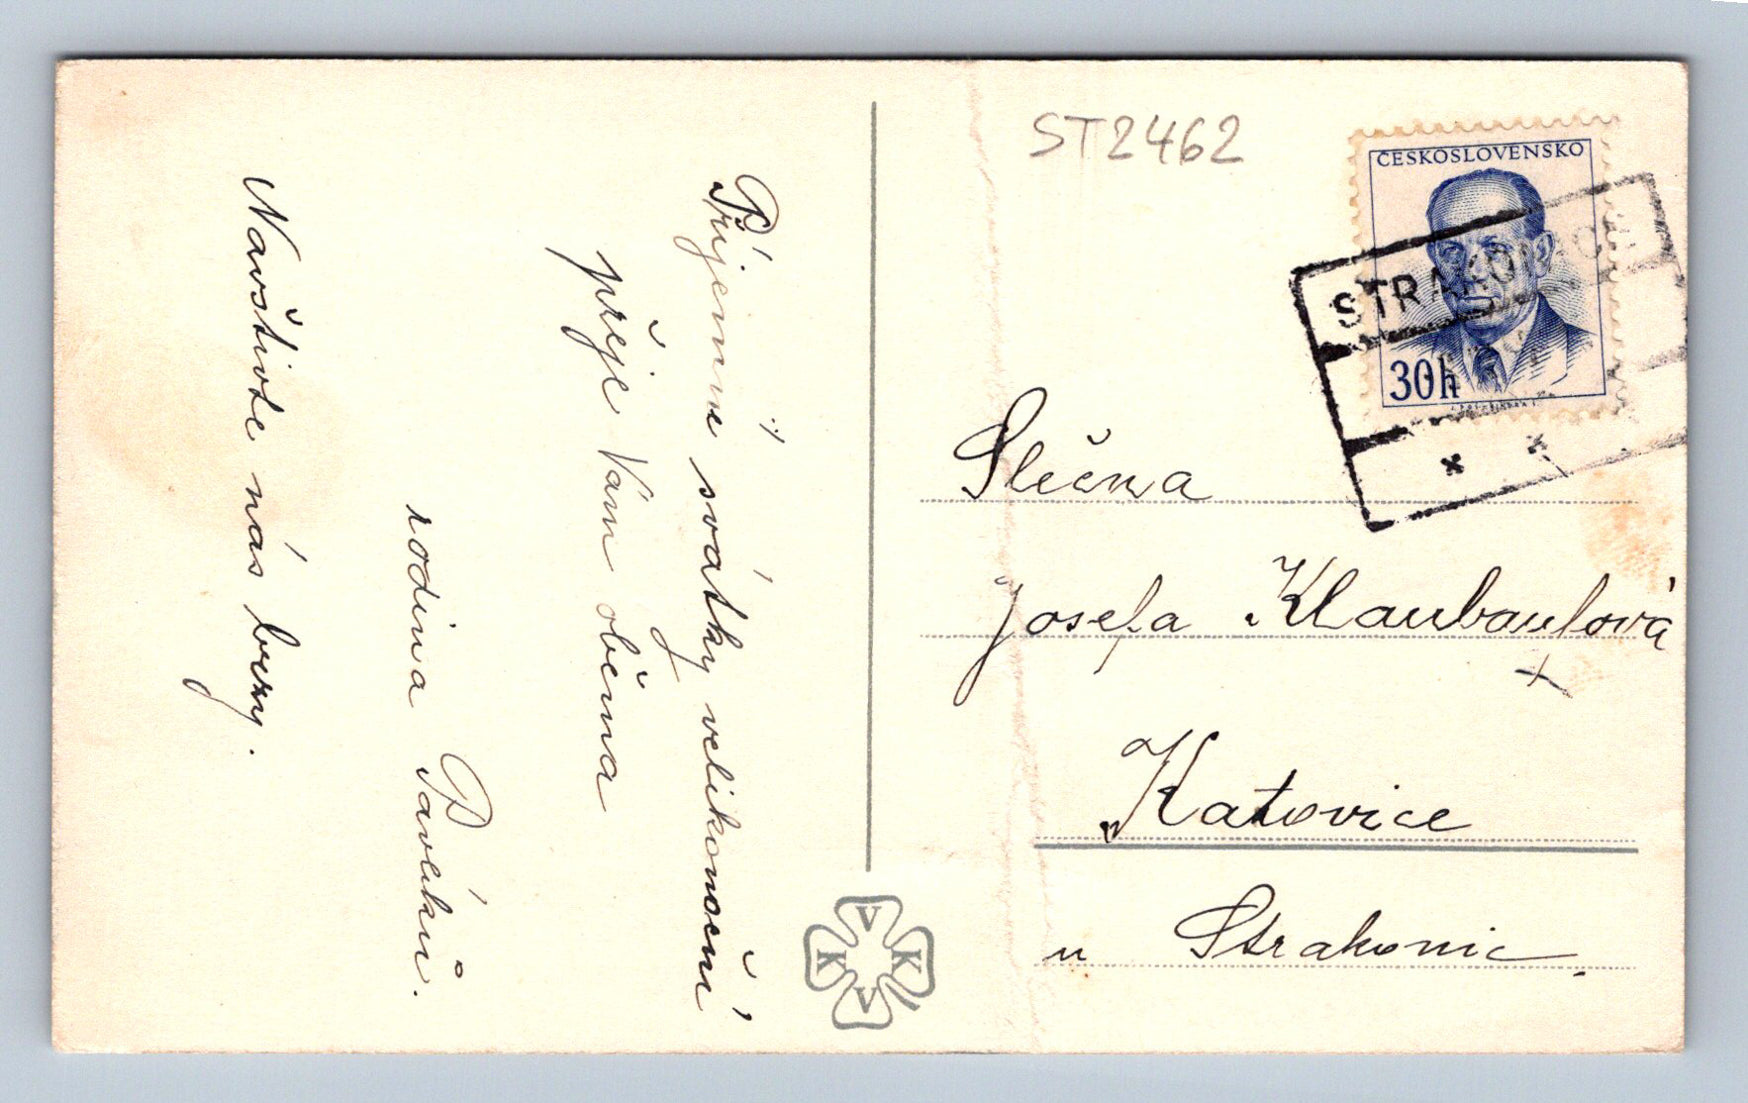 Příjemné svátky velikonoční
přeje Vám oběma
rodina Pavlíků.
Navštivte nás brzy.
ST2462
ČESKOSLOVENSKO
30h
STRAKONICE
Slečna
Josefa Klaubaufová
Katovice
u Strakonic.
V
K K
V